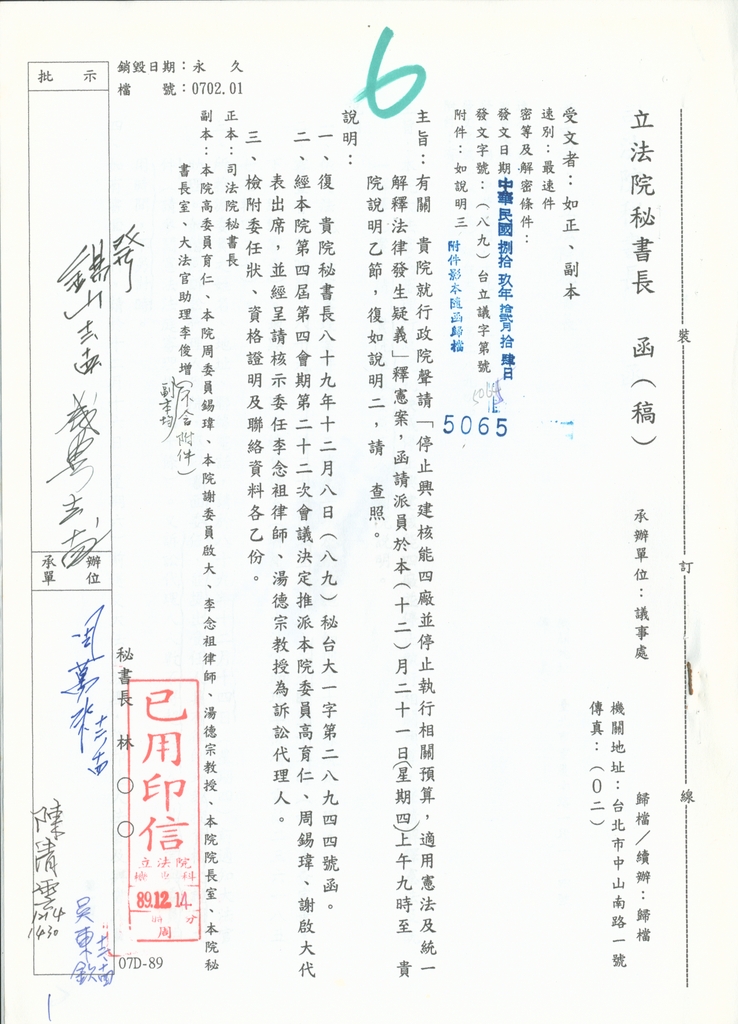 6
裝
訂
線
立法院秘書長　函（稿）
承辦單位：議事處
歸檔／續辦：歸檔
機關地址：台北市中山南路一號
傳真：（０二）
受文者：如正、副本
速別：最速件
密等及解密條件：
發文日期：中華民國捌拾玖年拾貳月拾肆日
發文字號：（八九）台立議字第號
5065
附件：如說明三
附件影本隨函歸檔
主旨：有關　貴院就行政院聲請「停止興建核能四廠並停止執行相關預算，適用憲法及統一
解釋法律發生疑義」釋憲案，函請派員於本（十二）月二十一日（星期四）上午九時至　貴
院說明乙節，復如說明二，請　查照。
說明：
一、復　貴院秘書長八十九年十二月八日（八九）秘台大一字第二八九四四號函。
二、經本院第四屆第四會期第二十二次會議決定推派本院委員高育仁、周錫瑋、謝啟大代
表出席，並經呈請核示委任李念祖律師、湯德宗教授為訴訟代理人。
三、檢附委任狀、資格證明及聯絡資料各乙份。
正本：司法院秘書長
副本：本院高委員育仁、本院周委員錫瑋、本院謝委員啟大、李念祖律師、湯德宗教授、本院院長室、本院秘
書長室、大法官助理李俊增（不含附件）
副本均
銷毀日期：永　久
檔　　號：0702.01
秘書長　林　○　○
已用印信
立法院
89.12.14.
周
07D-89
批　示
發
承辦
單位
陳清雲
1214
1430
吳東欽